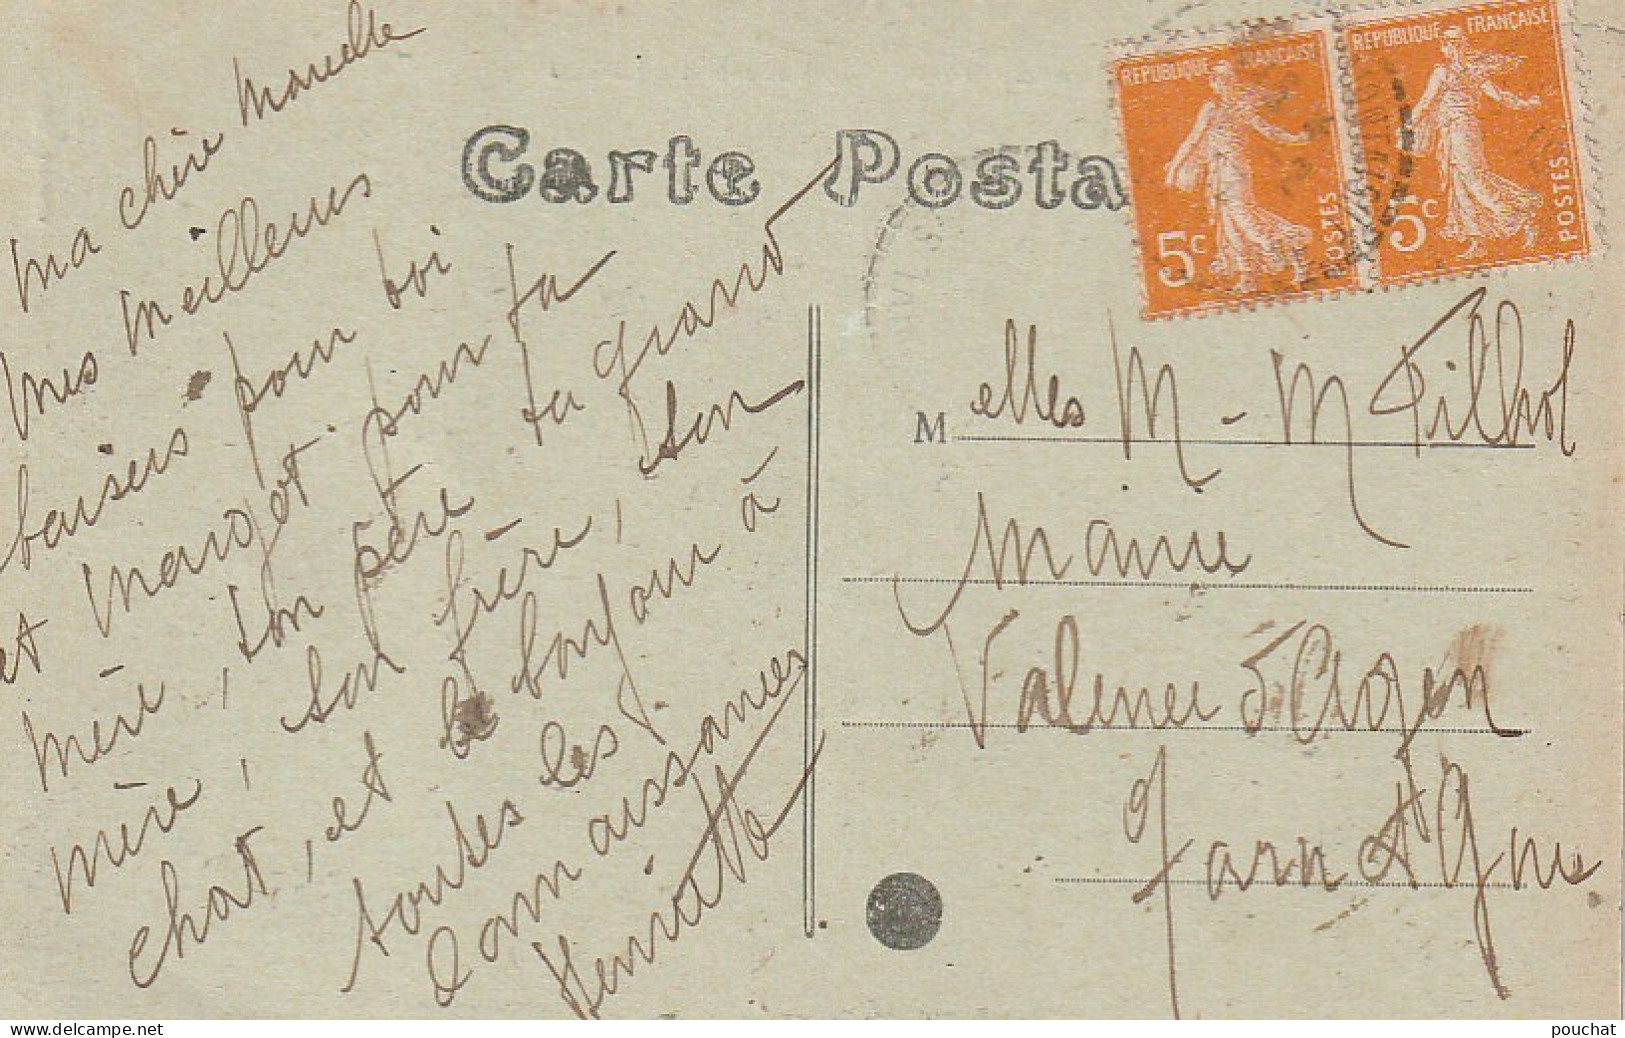 Carte Posta
REPUBLIQUE FRANÇAISE
5c
POSTES
REPUBLIQUE FRANÇAISE
5c
POSTES
Ma chère Marcelle
Mes meilleurs
baisers pour toi
et Marget pour ta
mère, ton père ta grand
mère, ton frère, ton
chat, et le bonjour à
toutes les
connaissances
Henriette
Melles M - M Filhol
Mairie
Valence d'Agen
Tarn et Gne
delcampe.net
pouchat